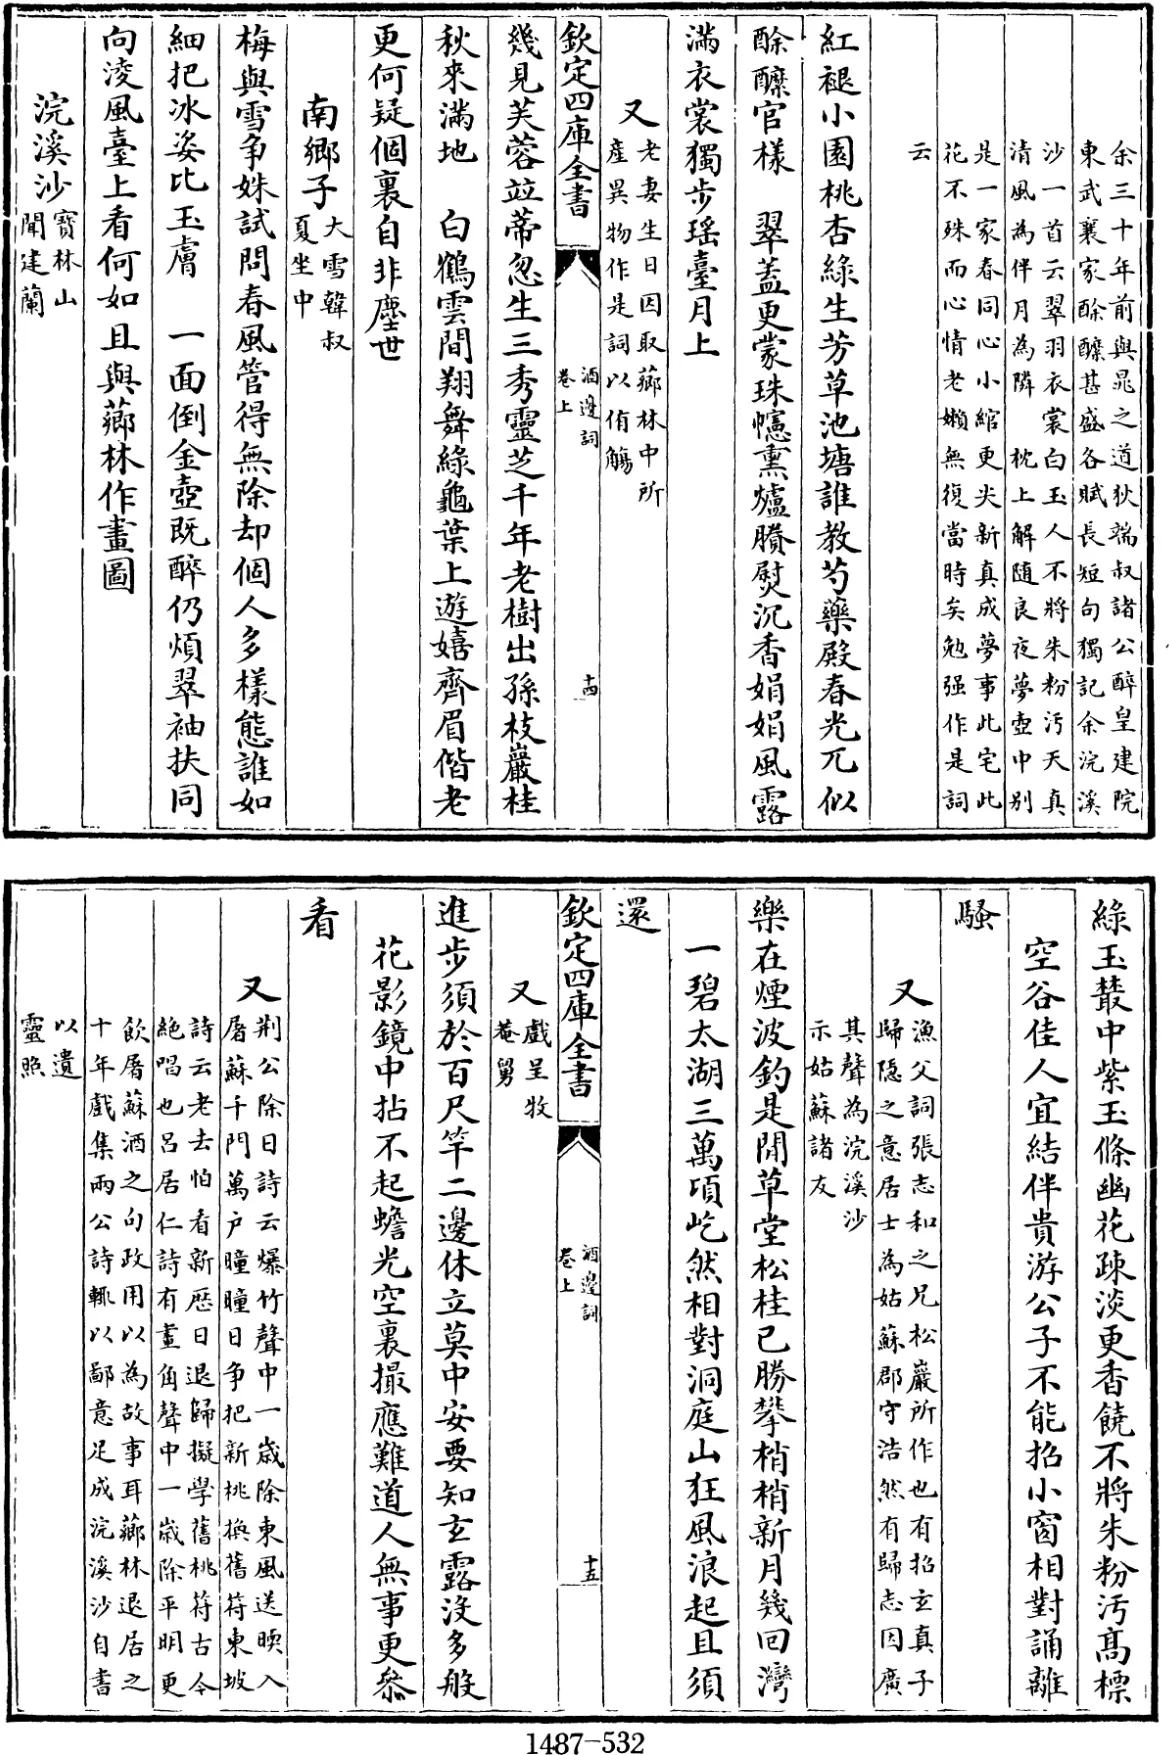 余三十年前與晁之道狄端叔諸公醉皇建院
東武襄家酴醿甚盛各賦長短句獨記余浣溪
沙一首云翠羽衣裳白玉人不將朱粉汚天真
清風為伴月為隣　枕上解隨良夜夢壺中別
是一家春同心小綰更尖新真成夢事此宅此
花不殊而心情老嬾無復當時矣勉强作是詞
云
紅褪小園桃杏綠生芳草池塘誰教芍藥殿春光兀似
酴醿官樣　翠蓋更蒙珠幰熏爐賸熨沉香娟娟風露
滿衣裳獨步瑶臺月上
又老妻生日因取薌林中所
產異物作是詞以侑觴
欽定四庫全書
酒邊詞
卷上
十四
幾見芙蓉竝蒂忽生三秀靈芝千年老樹出孫枝巖桂
秋來滿地　白鶴雲間翔舞綠龜葉上遊嬉齊眉偕老
更何疑個裏自非塵世
南鄉子大雪韓叔
夏坐中
梅與雪争姝試問春風管得無除却個人多樣態誰如
細把冰姿比玉膚　一面倒金壺既醉仍煩翠袖扶同
向淩風臺上看何如且與薌林作畫圖
浣溪沙寳林山
聞建蘭
綠玉叢中紫玉條幽花疎淡更香饒不將朱粉汚髙標
空谷佳人宜結伴貴游公子不能招小窗相對誦離
騷
又漁父詞張志和之兄松巖所作也有招玄真子
歸隐之意居士為姑蘇郡守浩然有歸志因廣
其聲為浣溪沙
示姑蘇諸友
樂在煙波釣是閒草堂松桂已勝攀梢梢新月幾回灣
一碧太湖三萬頃屹然相對洞庭山狂風浪起且須
還
欽定四庫全書
酒邊詞
卷上
十五
又戲呈牧
菴舅
進步須於百尺竿二邊休立莫中安要知玄露没多般
花影鏡中拈不起蟾光空裏撮應難道人無事更叅
看
又荆公除日詩云爆竹聲中一歲除東風送暖入
屠蘇千門萬户曈曈日争把新桃換舊符東坡
詩云老去怕看新厯日退歸擬學舊桃符古今
絶唱也呂居仁詩有畫角聲中一歲除平明更
飲屠蘇酒之句政用以為故事耳薌林退居之
十年戲集兩公詩輒以鄙意足成浣溪沙自書
以遺
靈照
1487-532